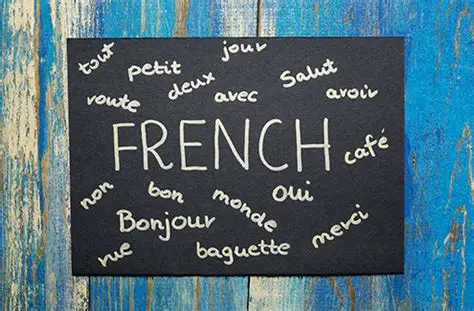 tout
jour
petit
deux
Salut
route
avec
avoir
FRENCH
café
non
bon
monde
Oui
Bonjour
merci
rue
baguette